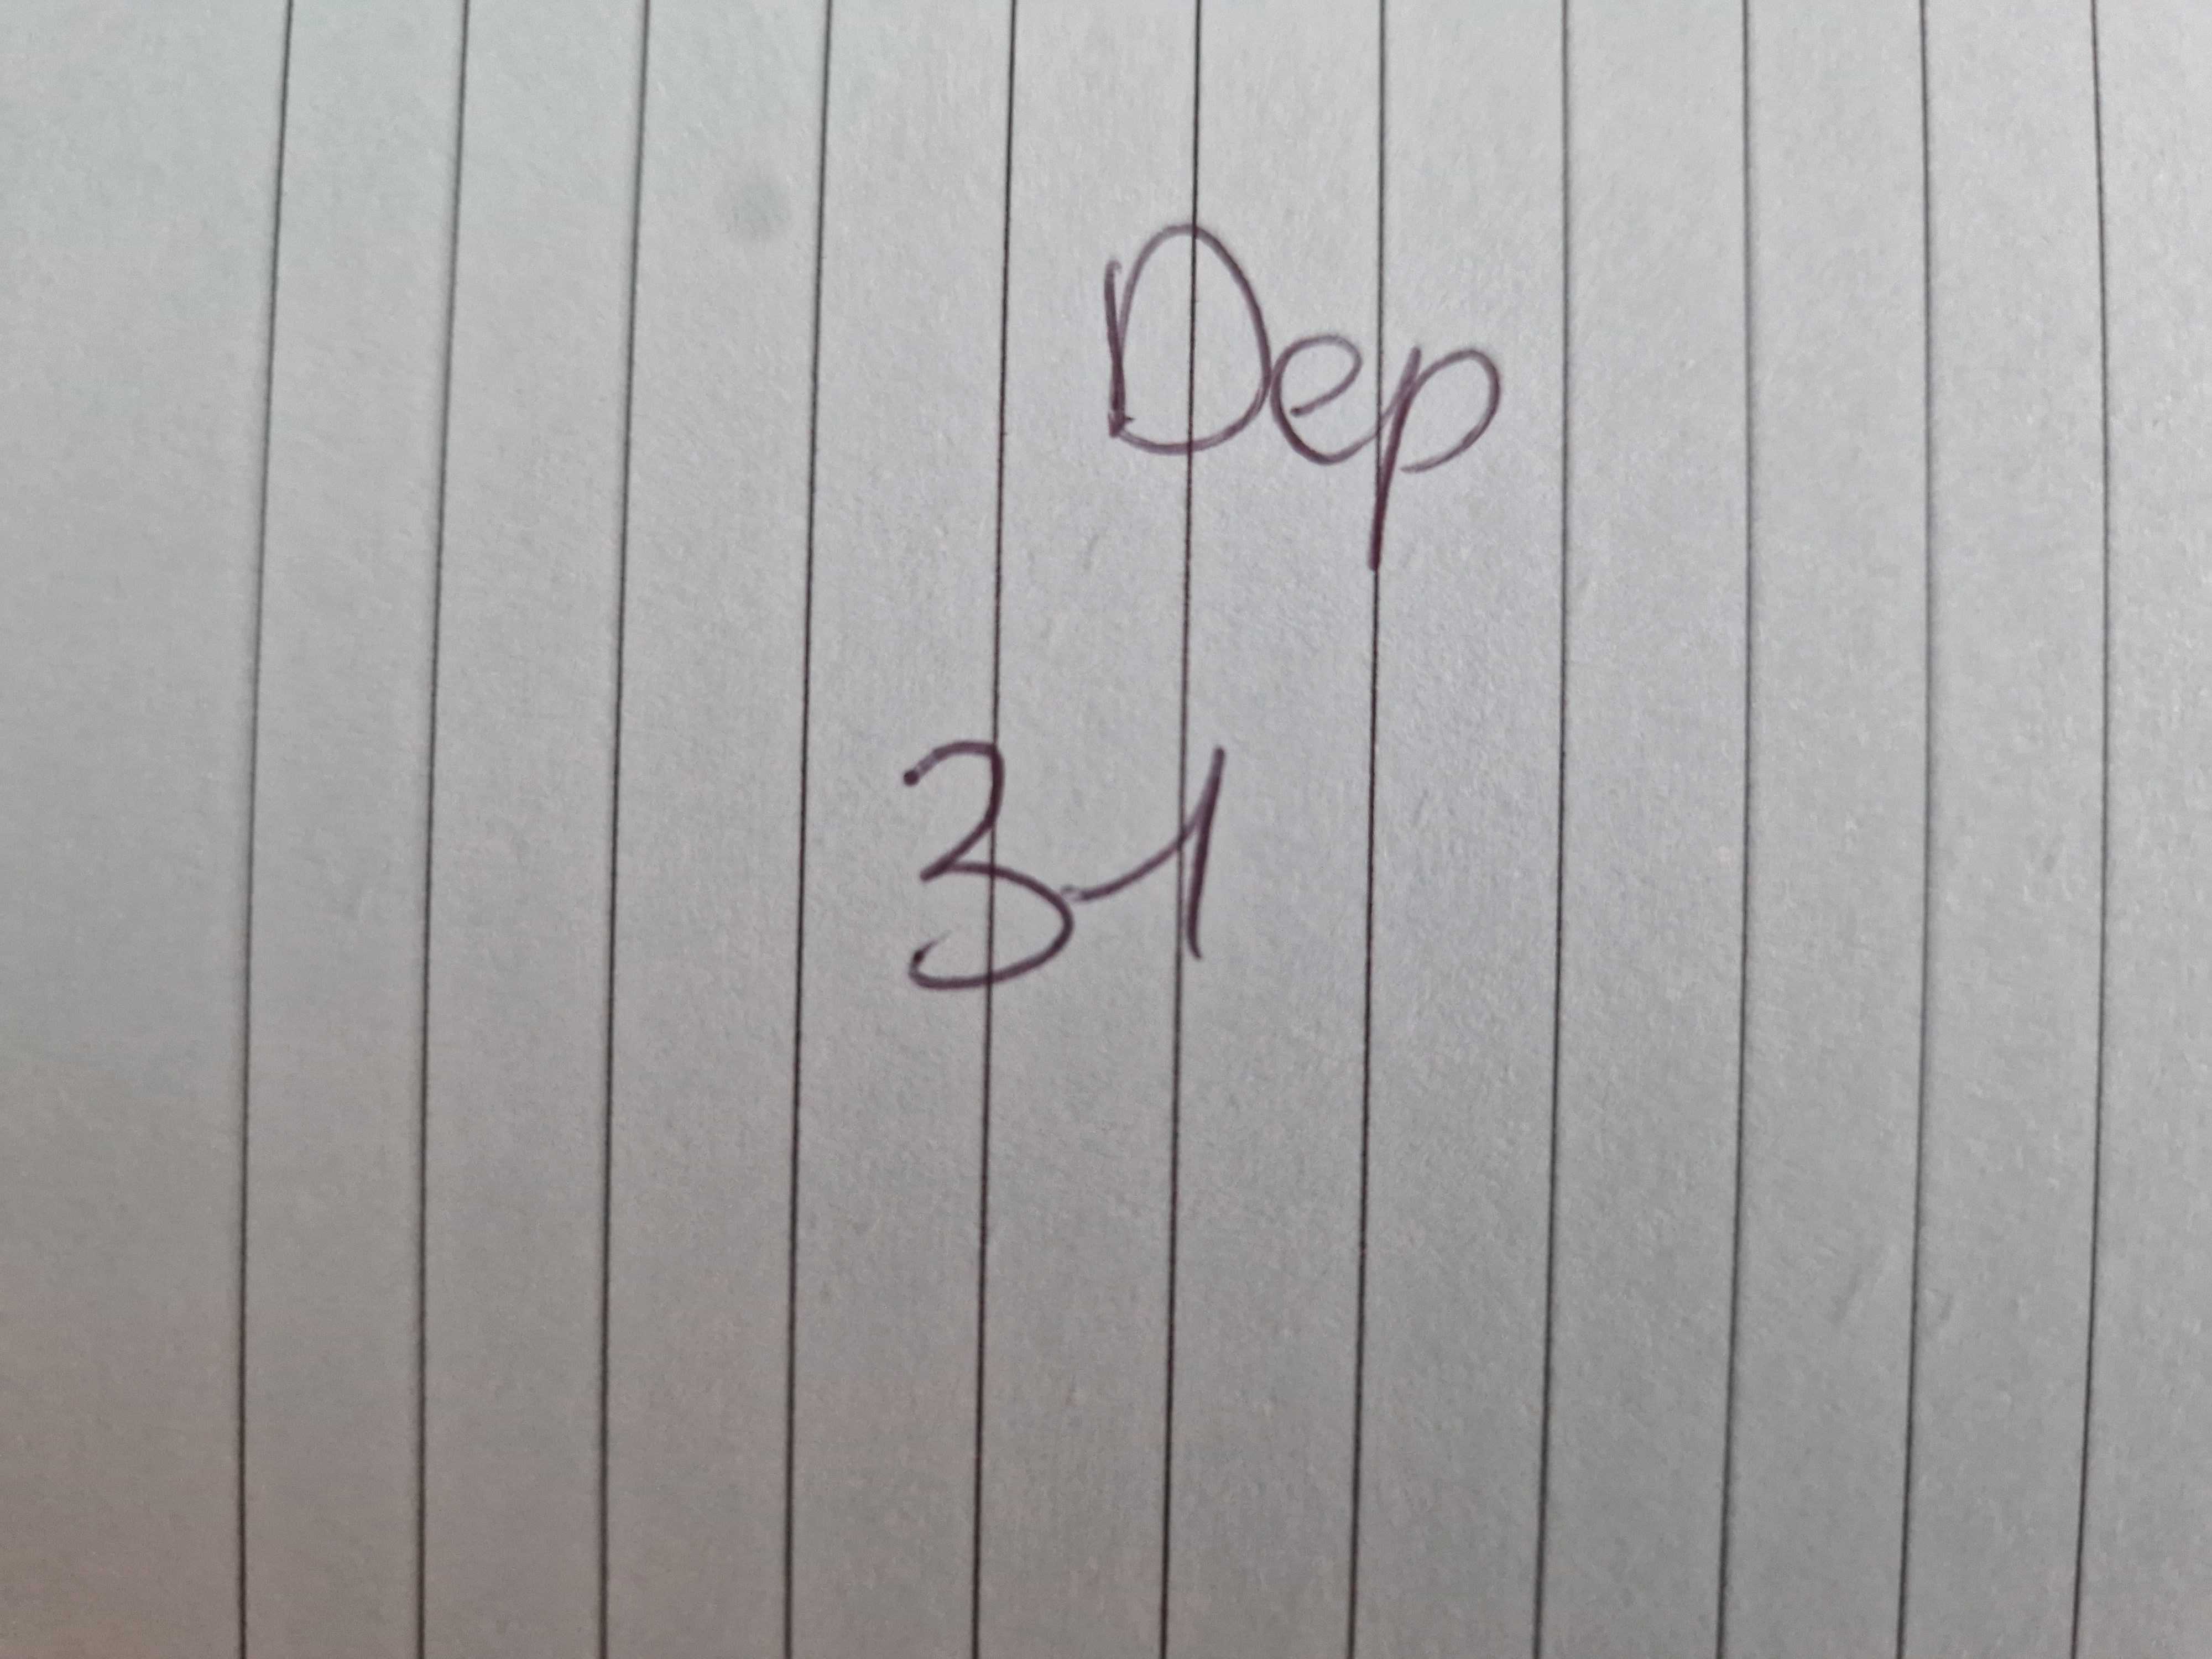 Dep
31